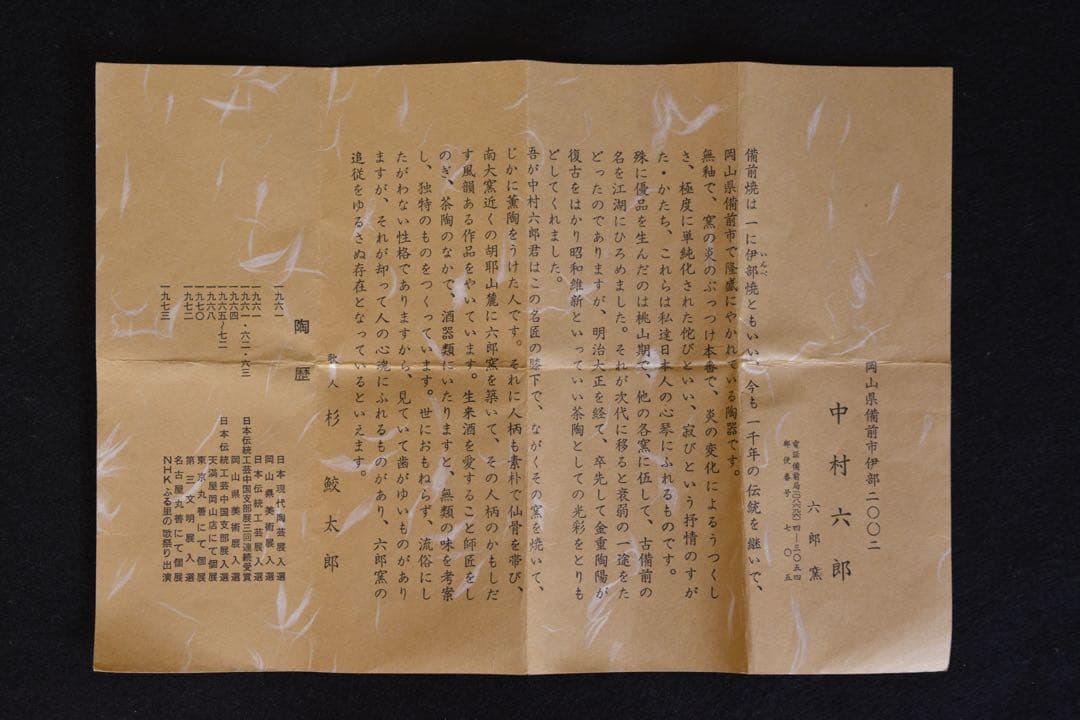 備前焼は一に伊部焼ともいい、今も一千年の伝統を継いで、
いんべ
岡山県備前市で隆盛にやかれている陶器です。
無釉で、窯の炎のぶっつけ本番で、炎の変化によるうつくし
さ、極度に単純化された侘びといい、寂びという抒情のすが
た・かたち、これらは私達日本人の心琴にふれるものです。
殊に優品を生んだのは桃山期で、他の各窯に伍して、古備前の
名を江湖にひろめました。それが次代に移ると衰弱の一途をた
どったのでありますが、明治大正を経て、卒先して金重陶陽が
復古をはかり昭和維新といっていい茶陶としての光彩をとりも
どしてくれました。
吾が中村六郎君はこの名匠の膝下で、ながくその窯を焼いて、
じかに薫陶をうけた人です。それに人柄も素朴で仙骨を帯び、
南大窯近くの胡耶山麓に六郎窯を築いて、その人柄のかもしだ
す風韻ある作品をやいています。生来酒を愛すること師匠をし
のぎ、茶陶のなかで、酒器類にいたりますと、無類の味を考案
し、独特のものをつくっています。世におもねらず、流俗にし
たがわない性格でありますから、見ていて歯がゆいものがあり
ますが、それが却って人の心魂にふれるものがあり、六郎窯の
追従をゆるさぬ存在となっているといえます。
歌人 杉鮫太郎
岡山県備前市伊部二〇〇二
中村六郎
六郎窯
電話備前局(〇八六六六)四―三〇五四
郵便番号 七〇五
陶歴
一九六一 日本現代陶芸展入選
岡山県美術展入選
一九六一 日本伝統工芸展入選
一九六一・六二・六三 日本伝統工芸中国支部展三回連続受賞
一九六四 岡山県美術展入選
一九六五〜七二 日本伝統工芸中国支部展入選
一九六八 天満屋岡山店にて個展
一九七〇 東京丸善にて個展
一九七二 第三文明展入選
名古屋丸善にて個展
一九七三 NHKふる里の歌祭り出演